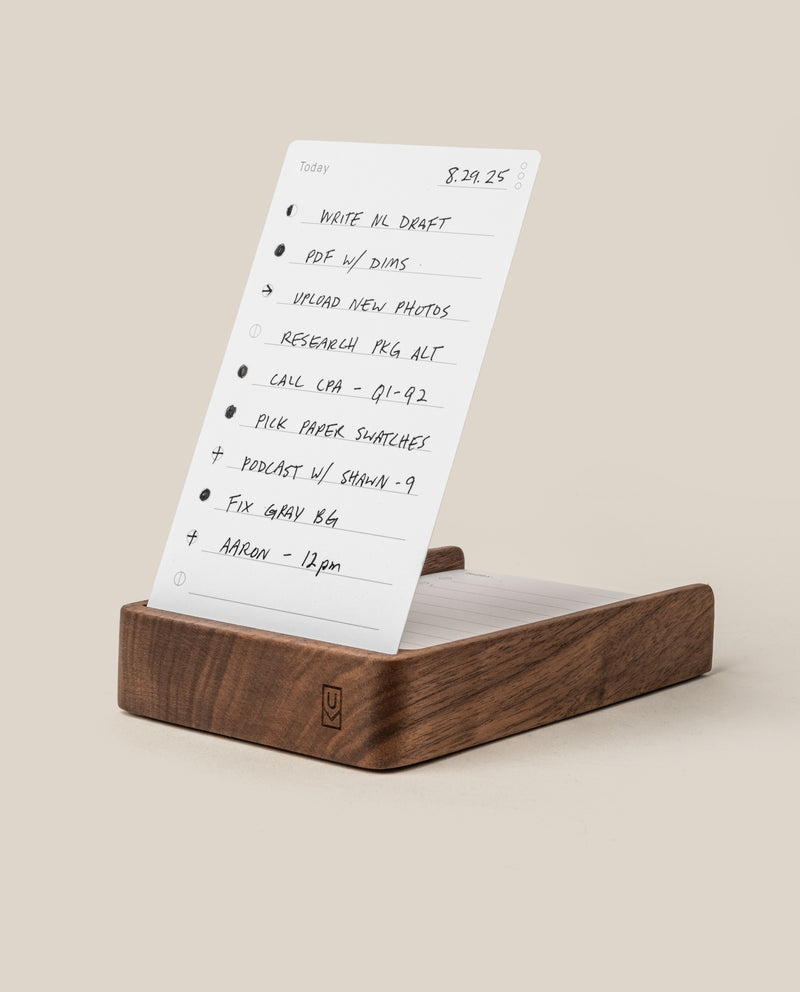 Today
8.29.25
WRITE NL DRAFT
PDF W/ DIMS
UPLOAD NEW PHOTOS
RESEARCH PKG ALT
CALL CPA - Q1-92
PICK PAPER SWATCHES
PODCAST W/ SHAWN - 9
FIX GRAY BG
AARON - 12pm